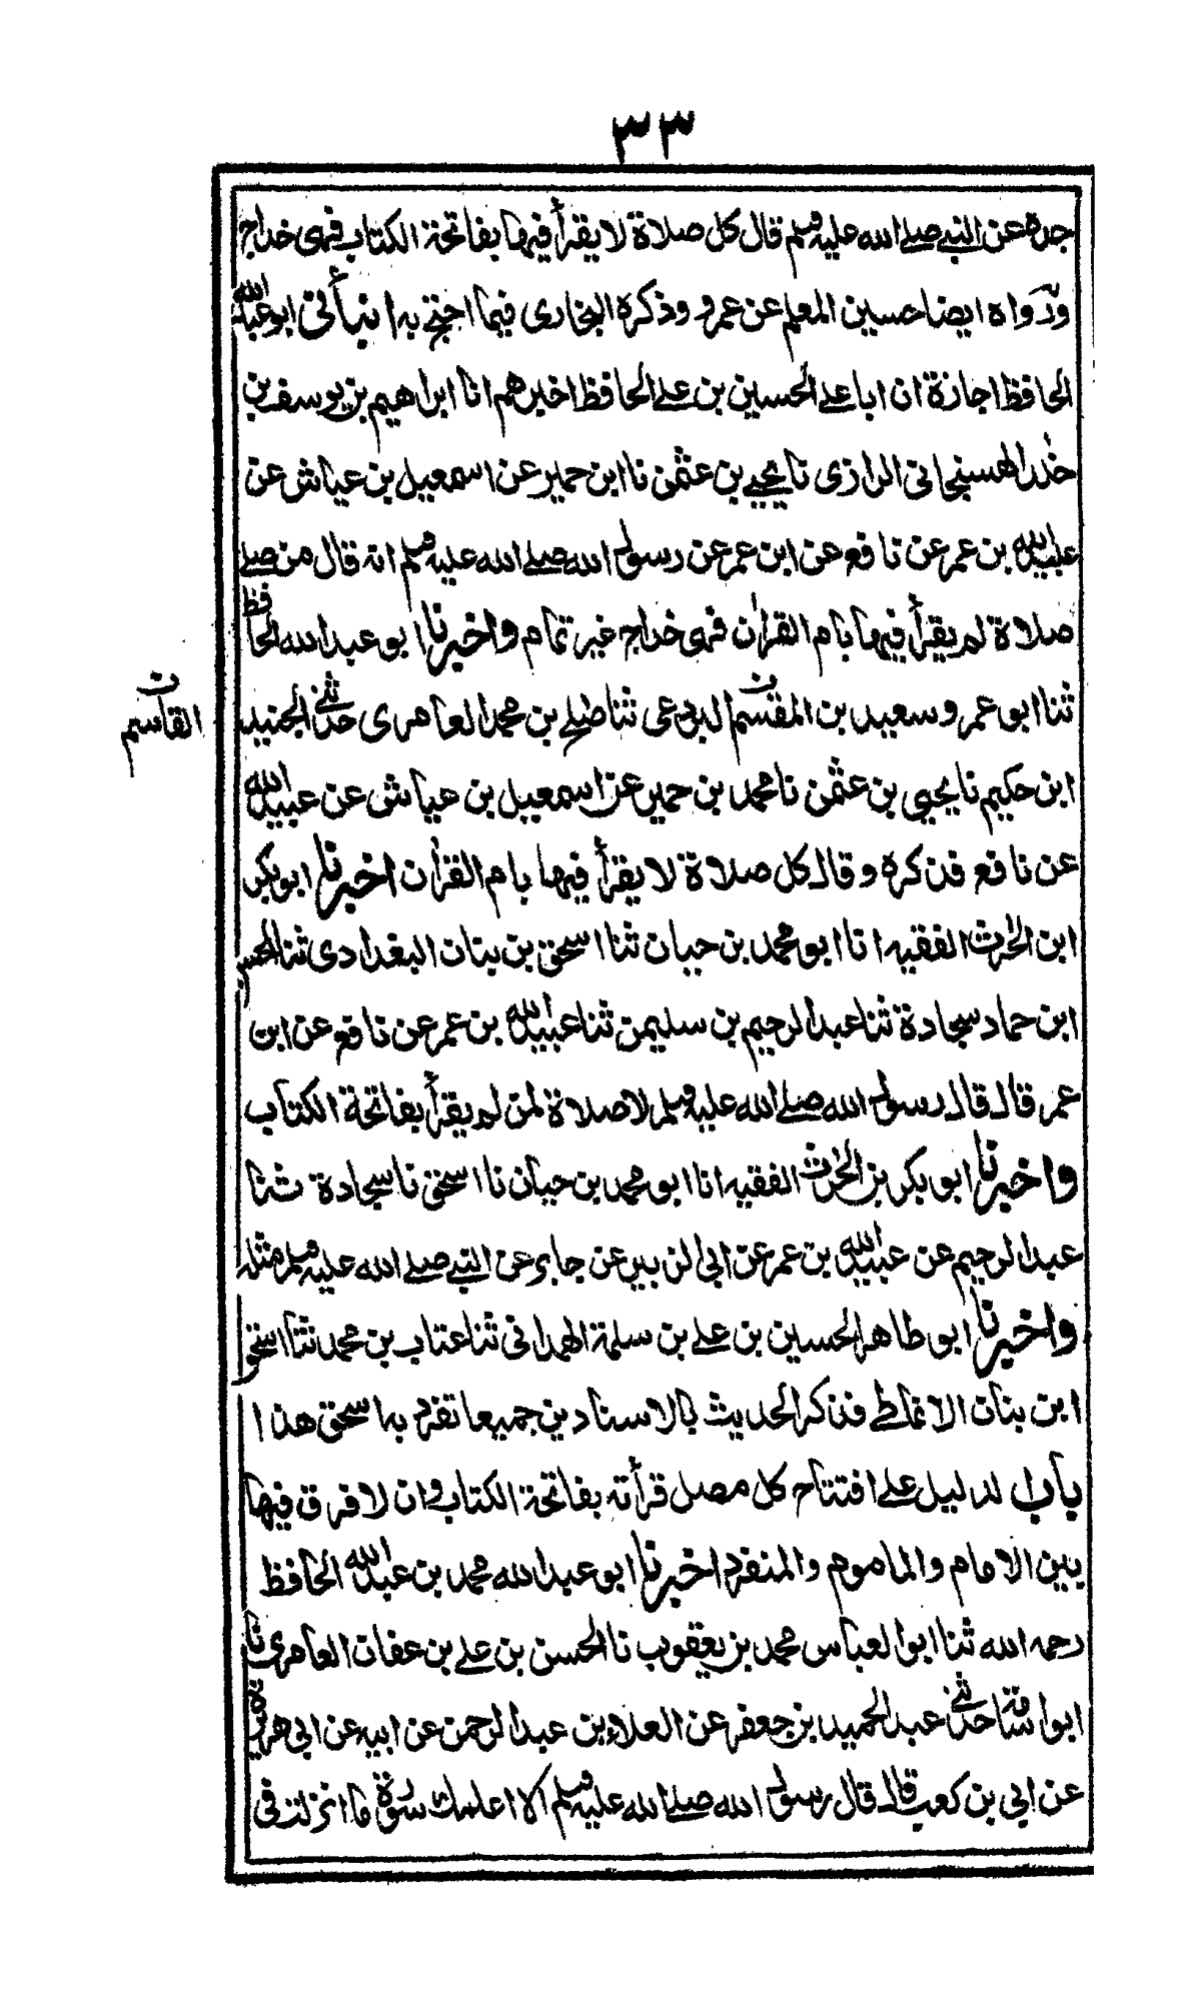 ٣٣
جده عن النبي صلى الله عليه وسلم قال كل صلاة لا يقرأ فيها بفاتحة الكتاب فهى خداج
ورواه ايضا حسين المعلم عن عمرو وذكره البخارى فيما احتج به انبأنى ابو عبد الله
الحافظ اجازة ان ابا على الحسين بن على الحافظ اخبرهم انا ابراهيم بن يوسف بن
خلد الهسنجانى الرازى نا يحيى بن عثمن نا ابن حمير عن اسمعيل بن عياش عن
عبيد الله بن عمر عن نافع عن ابن عمر عن رسول الله صلى الله عليه وسلم انه قال من صلى
صلاة لم يقرأ فيها بام القرآن فهى خداج غير تمام واخبرنا ابو عبد الله الحافظ
ثنا ابو عمرو سعيد بن المقسم البردعى ثنا صلح بن محمد العامرى حدثنى الجنيد
ن القاسم
ابن حكيم نا يحيى بن عثمن نا محمد بن حمير عن اسمعيل بن عياش عن عبيد الله
عن نافع فذكره وقال كل صلاة لا يقرأ فيها بام القرآن اخبرنا ابو بكر
ابن الحرث الفقيه انا ابو محمد بن حيان ثنا اسحق بن بنان البغدادى ثنا الحسن
ابن حماد سجادة ثنا عبد الرحيم بن سليمن ثنا عبيد الله بن عمر عن نافع عن ابن
عمر قال قال رسول الله صلى الله عليه وسلم لا صلاة لمن لم يقرأ بفاتحة الكتاب
واخبرنا ابو بكر بن الحرث الفقيه انا ابو محمد بن حيان نا اسحق نا سجادة ثنا
عبد الرحيم عن عبيد الله بن عمر عن ابى الزبير عن جابر عن النبي صلى الله عليه وسلم مثله
واخبرنا ابو طاهر الحسين بن على بن سلمة الهمدانى ثنا عتاب بن محمد ثنا اسحق
ابن بنان الانماطى فذكر الحديث بالاسنادين جميعا تفرد به اسحق هذا
باب الدليل على افتتاح كل مصل قرأته بفاتحة الكتاب وان لا فرق فيها
بين الامام والماموم والمنفرد اخبرنا ابو عبد الله محمد بن عبد الله الحافظ
رحمه الله ثنا ابو العباس محمد بن يعقوب نا الحسن بن على بن عفان العامرى نا
ابو اسامة حدثنى عبد الحميد بن جعفر عن العلاء بن عبد الرحمن عن ابيه عن ابى هريرة
عن ابى بن كعب قال قال رسول الله صلى الله عليه وسلم الا اعلمك سورة ما انزلت فى